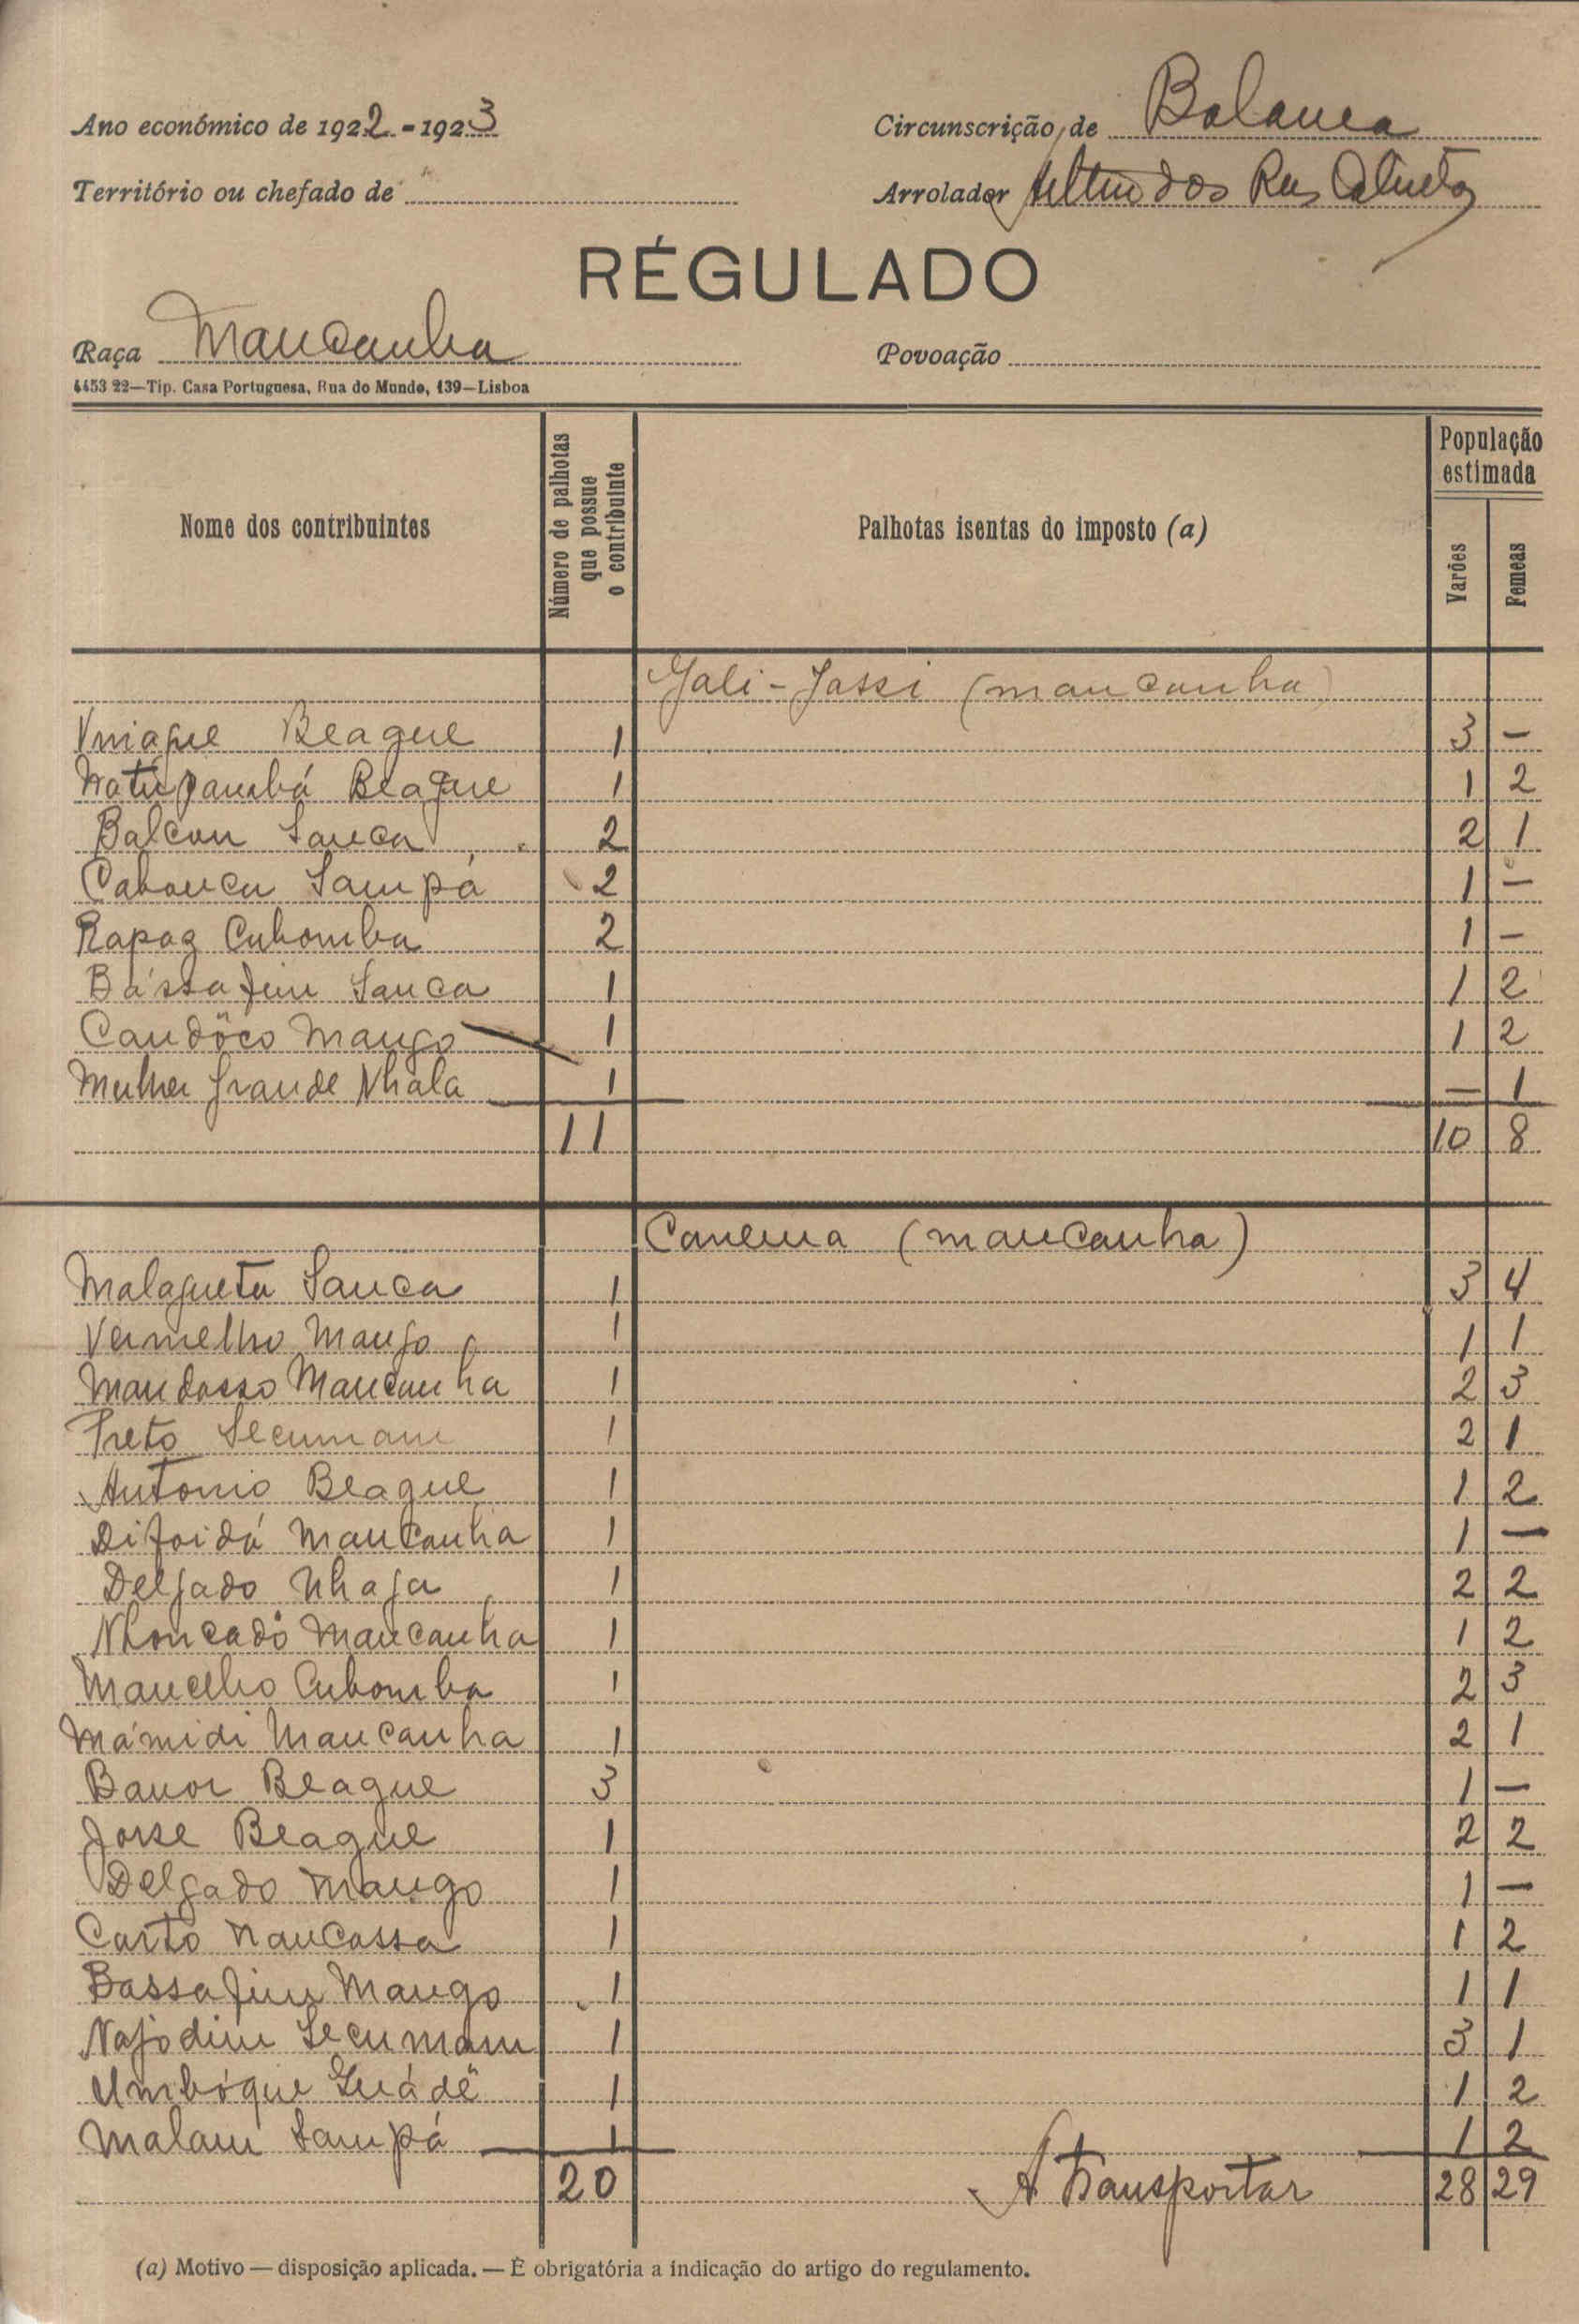 Ano económico de 1922-1923
Circunscrição de Balanta
Território ou chefado de
Arrolador dos Reis
RÉGULADO
Raça Mancanha
Povoação
4453 22—Tip. Casa Portuguesa, Rua do Mundo, 139—Lisboa
Nome dos contribuintes
Número de palhotas que possue o contribuinte
Palhotas isentas do imposto (a)
População estimada
Varões
Femeas
Jali-Jassi (mancanha)
Beague 1 3 —
Beague 1 1 2
Balcan Sanca 2 2 1
Cabanca Sampá 2 1 —
Rapaz Cubomba 2 1 —
Bássafim Sanca 1 1 2
Candôco Mango 1 1 2
Mulher grande Nhala 1 — 1
11 10 8
Canema (mancanha)
Malagueta Sanca 1 3 4
Vermelho Mango 1 1 1
Mandosso Mancanha 1 2 3
Preto Secumam 1 2 1
Antonio Beague 1 1 2
Difoidá Mancanha 1 1 —
Delgado Nhaga 1 2 2
Nhoncadó Mancanha 1 1 2
Cubomba 1 2 3
Mámidi Mancanha 1 2 1
Banor Beague 3 1 —
Jorse Beague 1 2 2
Delgado Mango 1 1 —
Carto Nancassa 1 1 2
Bassafim Mango 1 1 1
Najodim Secumam 1 3 1
Umbóque Guádê 1 1 2
Malam Sampá 1 1 2
20 A Transportar 28 29
(a) Motivo — disposição aplicada. — É obrigatória a indicação do artigo do regulamento.